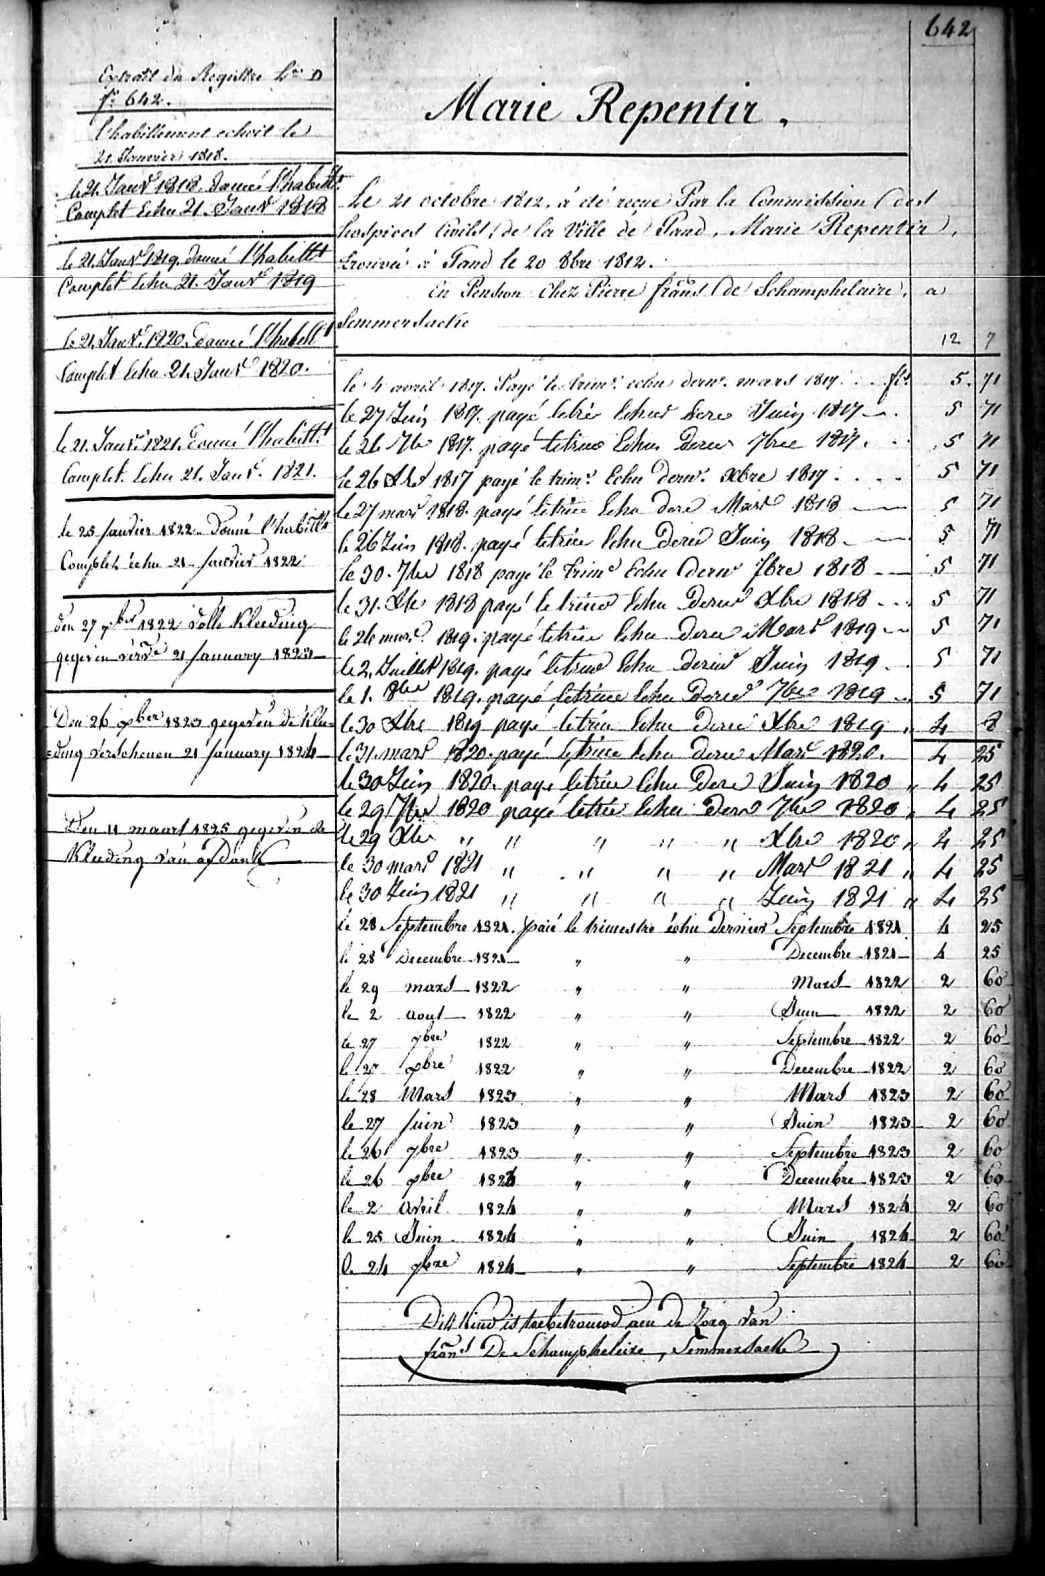 642
Extrait du Registre L.ra D
f.o 642.
l'habillement echoit le
21. Janvier 1818.
le 21. Janvr 1818. donné l'habillt
Complet Echu 21. Janvr 1818
le 21. Janvr 1819. donné l'habillt
Complet Echu 21. Janvr 1819
le 21. Janvr. 1820. donné l'habillt
Complet Echu 21. Janvr 1820.
le 21. Janvr. 1821. donné l'habillt
Complet. Echu 21. Janvr. 1821.
le 25 Janvier 1822. Donné l'habillt
Complet échu 21 Janvier 1822
den 27 xber 1822 volle Kleeding
gegeven 21 January 1823
Den 26 xber 1823 gegeven de Klee=
=ding verschenen 21 January 1824
Den 11 maart 1825 gegeven de
Kleeding van
Marie Repentir.
Le 21 octobre 1812. à été reçue Par la Commission des
hospices Civils, de la Ville de Gand, Marie Repentir,
trouvée à Gand le 20 8bre 1812.
En Pension Chez Pierre frans De Schamphelaire, a
Semmersacke 12 7
le 4 avril 1817. Payé le trimr. echu dernr. mars 1817. . . fls 5. 71
le 27 Juin 1817. payé letri Echus Dere Juin 1817 5 71
le 26 7bre 1817. payé letrime Echu Derer 7bre 1817. 5 71
le 26 Xbre 1817 payé le trimr Echu dernr. Xbre 1817. . . . 5 71
le 27 mars 1818. payé letrime Echu Dere Mars 1818 5 71
le 26 Juin 1818. payé letrime Echu Derer Juin 1818 5 71
le 30. 7bre 1818 payé le trime Echu dernr 7bre 1818 5 71
le 31. Xbre 1818 payé le trime Echu Derer Xbre 1818 . . . 5 71
le 26 mars. 1819. payé letrime Echu derer Mars 1819 5 71
le 2. Juillet 1819. payé letrime Echu derer Juin 1819 5 71
le 1. 8bre 1819. payé letrime Echu Derer 7bre 1819 5 71
le 30 Xbre 1819 payé letrime Echu Derer Xbre 1819 " 4 8
le 31. mars 1820. payé letrime Echu derer Mars 1820. 4 25
le 30 Juin 1820. payé letrime Echu Dere Juin 1820 " 4 25
le 29 7bre 1820 payé letrime Echu Dere 7bre 1820 " 4 25
le 29 Xbre " " " " " Xbre 1820 " 4 25
le 30 mars 1821 " " " " Mars 1821 " 4 25
le 30 Juin 1821 " " " " Juin 1821 " 4 25
le 28 Septembre 1821. paié le trimestre échu dernier Septembre 1821 4 25
le 28 Decembre 1821 " " Decembre 1821 4 25
le 29 mars 1822 " " Mars 1822 2 60
le 2 aout 1822 " " Juin 1822 2 60
le 27 7bre 1822 " " Septembre 1822 2 60
le 27 xbre 1822 " " Decembre 1822 2 60
le 28 Mars 1823 " " Mars 1823 2 60
le 27 Juin 1823 " " Juin 1823 2 60
le 26 7bre 1823 " " Septembre 1823 2 60
le 26 xbre 1823 " " Decembre 1823 2 60
le 2 avril 1824 " " Mars 1824 2 60
le 25 Juin 1824 " " Juin 1824 2 60
le 24 7bre 1824 " " Septembre 1824 2 60
Dit Kind is toebetrouwd aen de Zorg van
frans De Schampheleire, Semmersacke